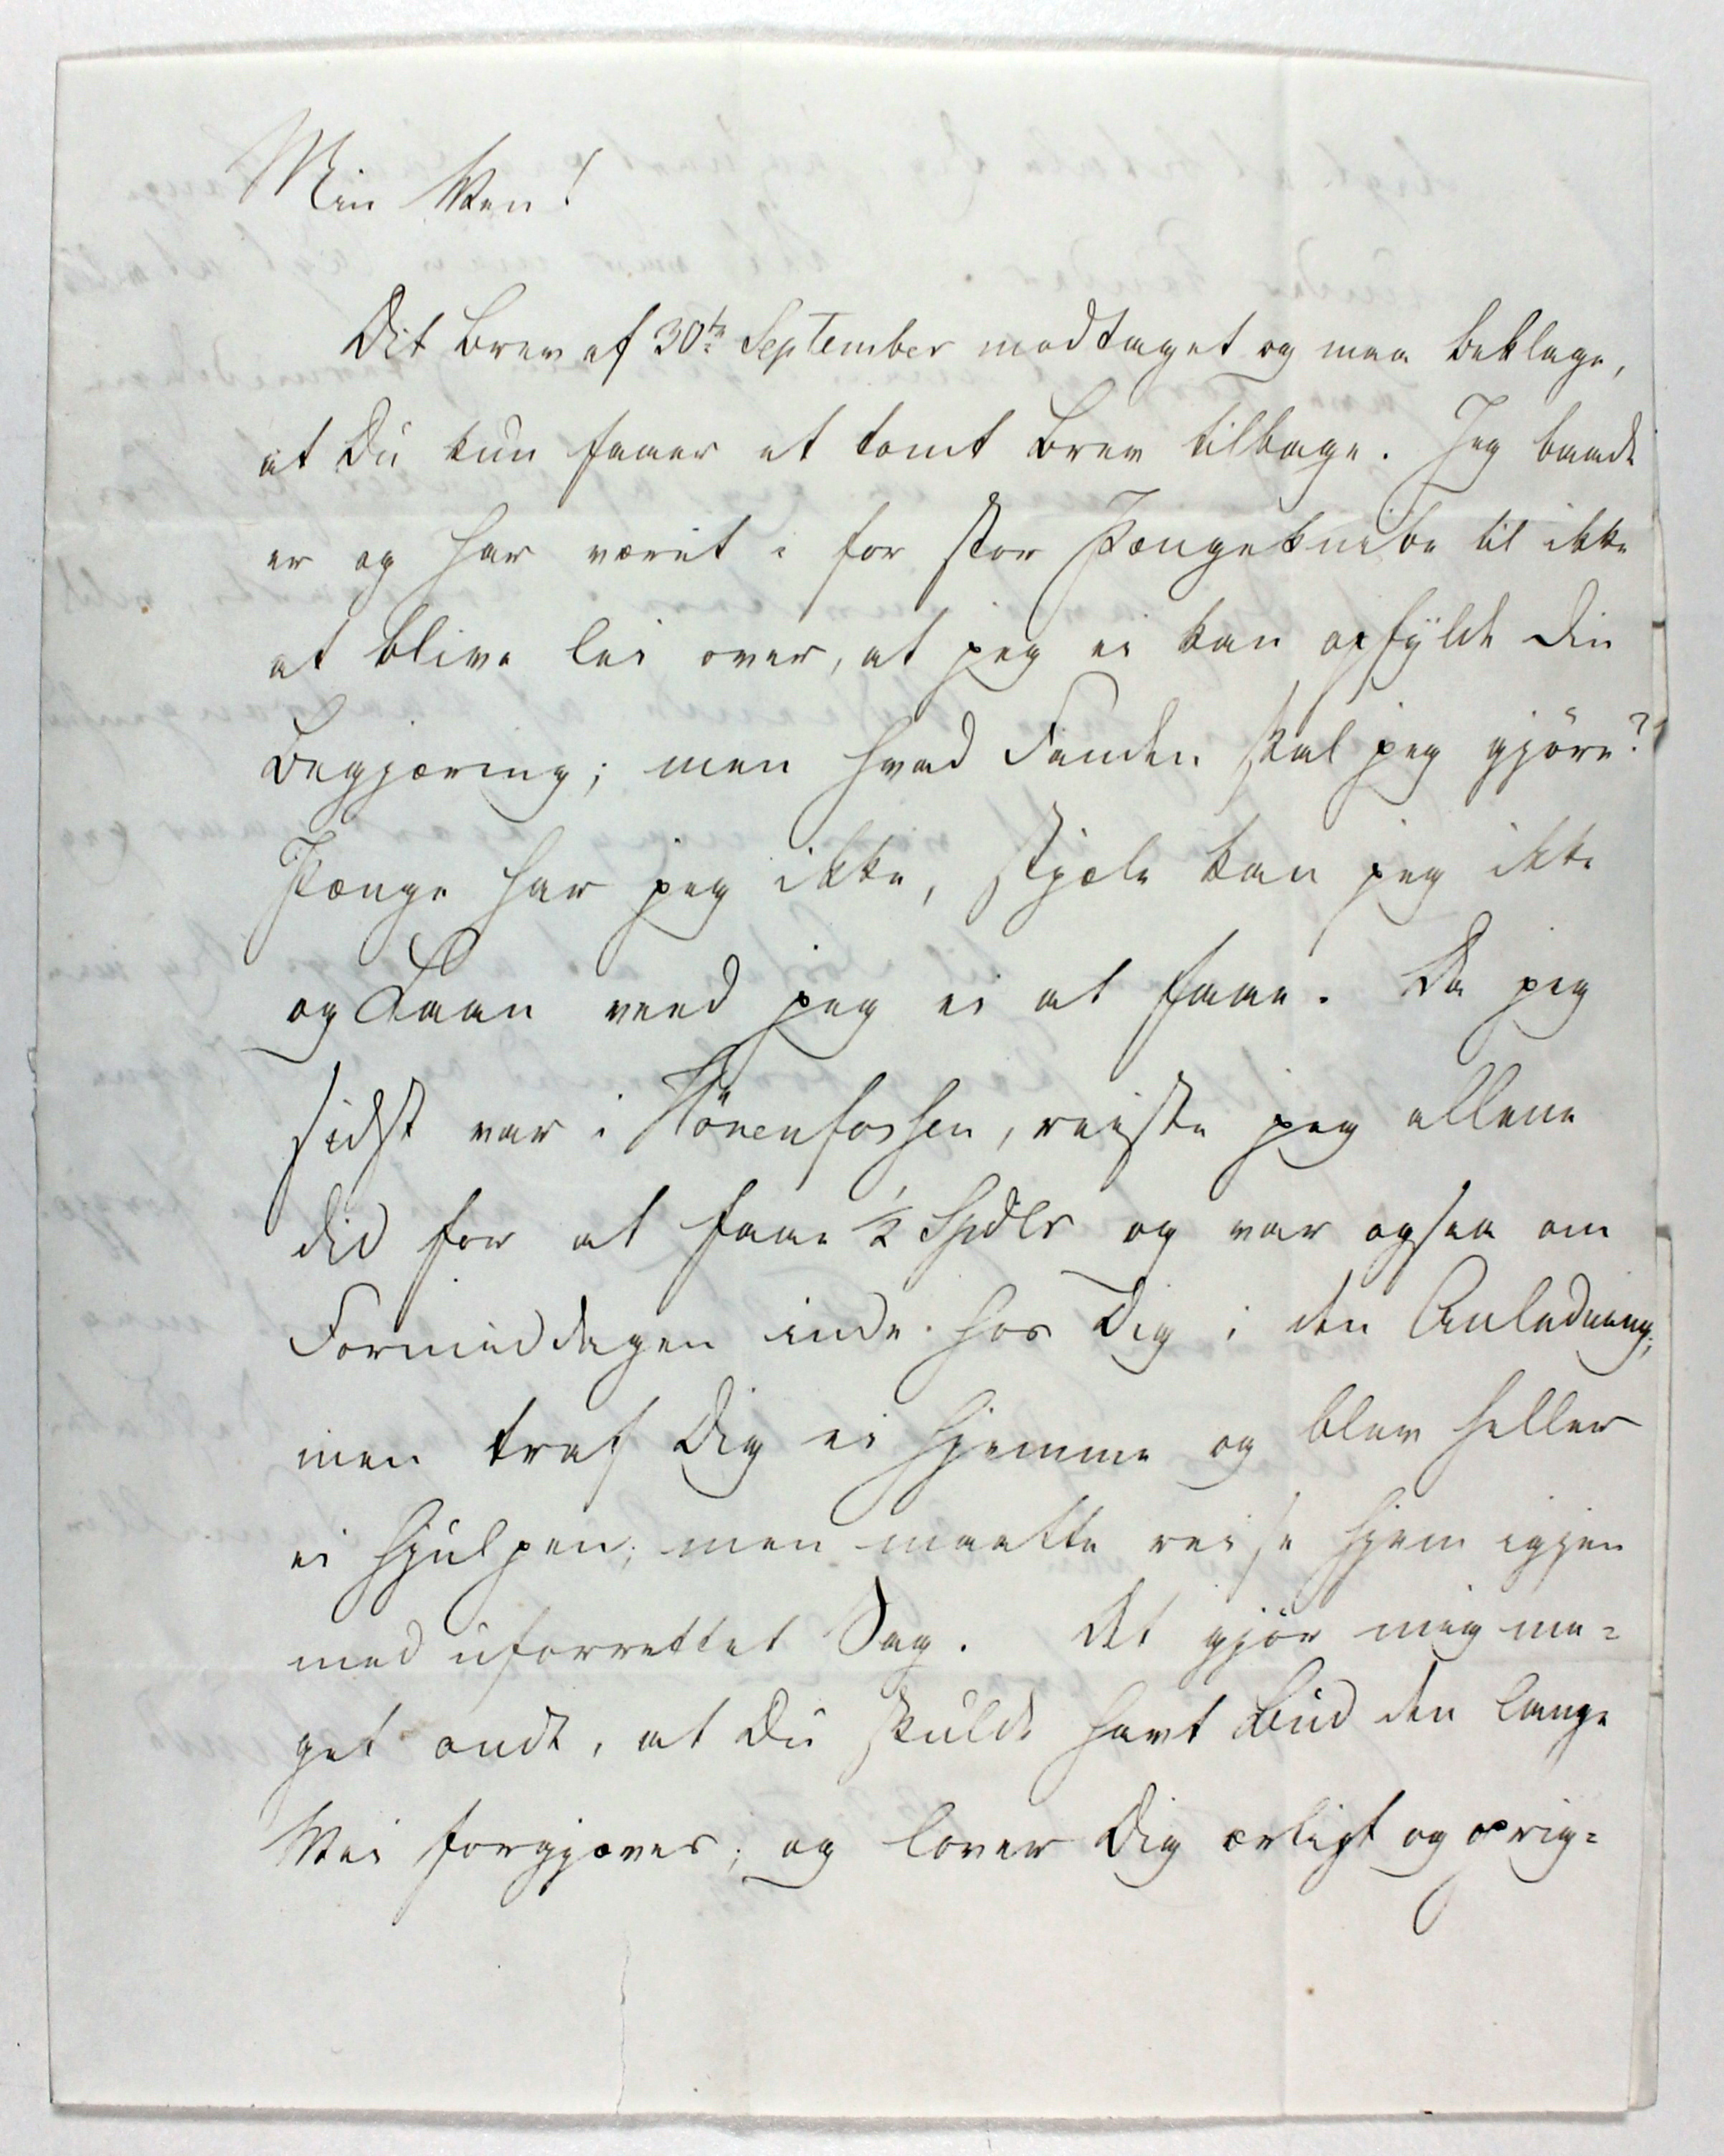 Min Ven!
Dit Brev af 30te September modtaget og maa beklage,
at Du kun faaer et tomt Brev tilbage. Jeg baade
er og har været i for stor Pængeknibe til ikke
at blive lei over, at jeg ei kan opfylde Din
Begjæring; men hvad Fanden skal jeg gjöre?
Pænge har jeg ikke, stjæle kan jeg ikke
og Laan veed jeg ei at faae. Da jeg
sidst var i Hönenfossen, reiste jeg allene
did for at faae 1/2 Spdlr og var ogsaa om
Formiddagen inde hos Dig i den Anledning;
men traf Dig ei hjemme og blev heller
ei hjulpen; men maatte reise hjem igjen
med uforrettet Sag. Det gjör mig me=
get ondt, at Du skulde havt Bud den lange
Vei forgjæves; og lover Dig ærligt og oprig=